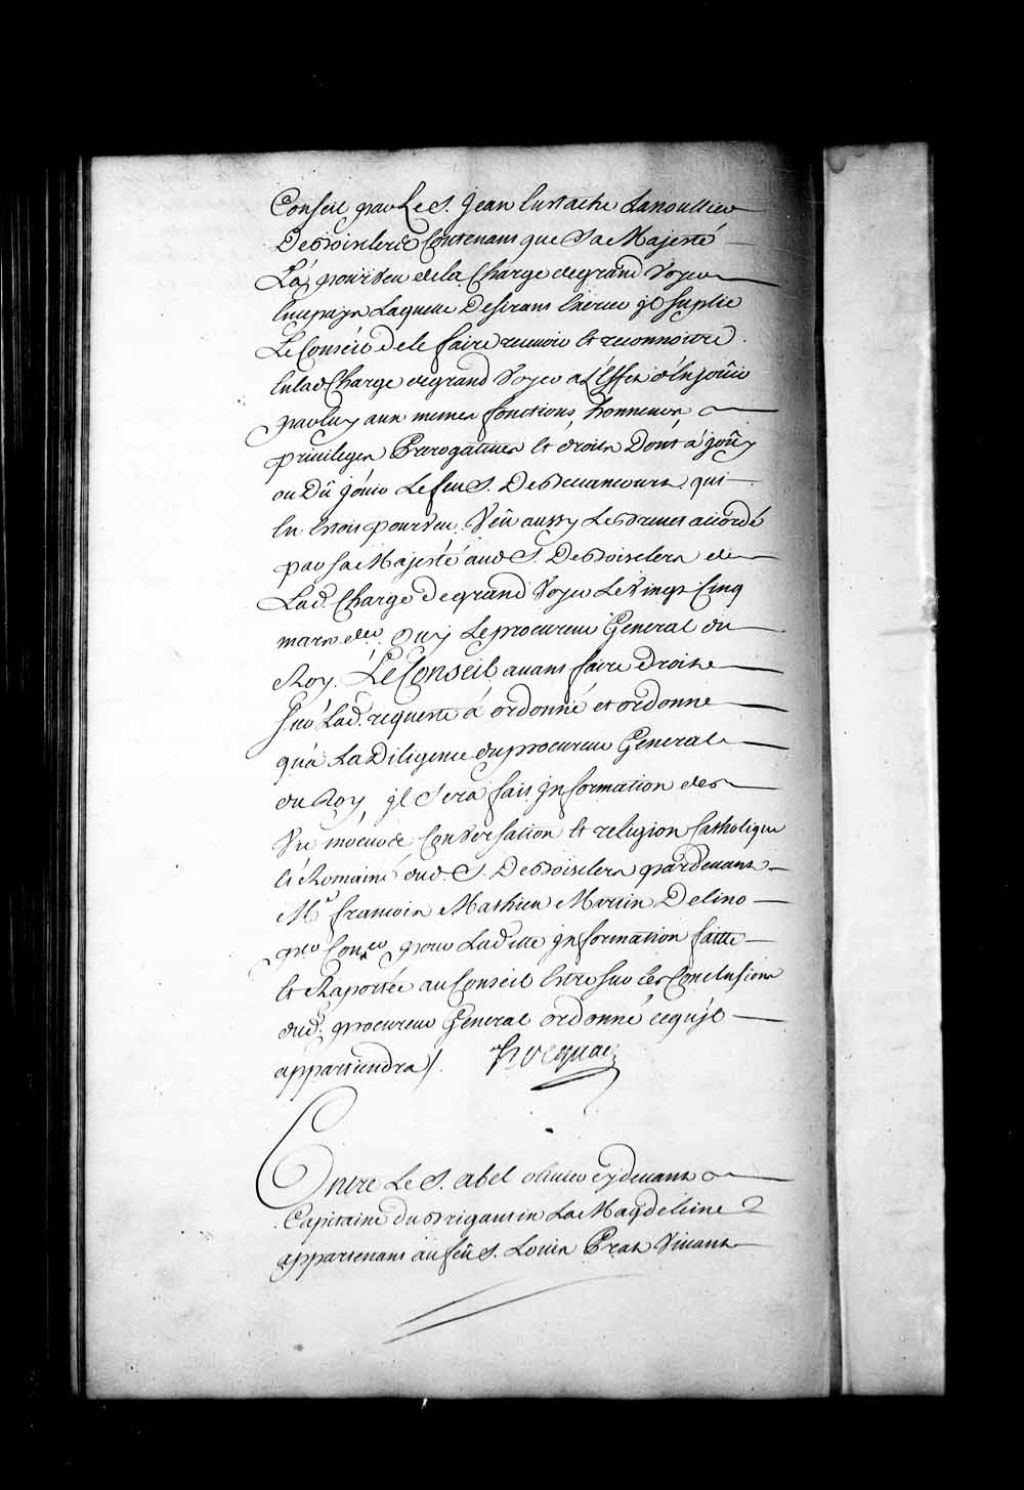 Conseil par Le S. Jean Eustache Lanoullier
Desboisclerc Contenant que Sa Majesté
La pourveu de la Charge de grand Voyer
En ce pays Laquelle Desirant Exercer jl Suplie
Le Conseil de le faire recevoir et reconnoitre
En lad Charge de grand Voyer a L'Effet d'En joüir
par luy aux memes fonctions, honneurs
privileges Prerogatives et droits Dont à joüy
ou Dû joüir Le feu S. De Becancourt qui
En Etoit pourveu. Veû aussy Le Brevet accordé
par sa Majesté aud S. Desboisclers de
Lad. Charge de grand Voyer Le Vingt Cinq
mars der. Ouy Le procureur General du
Roy. Le Conseil avant faire Droit
Sur Lad. requeste à ordonné et ordonne
qu'à La Diligence du procureur General
du Roy, jl Sera fait jnformation des
Vie moeurs Conversation et religion Catholique
et Romaine dud. S. Desboisclers pardevant
Me francois Mathieu Martin Delino
per Coner pour Laditte jnformation faitte
et Raportée au Conseil Estre sur les Conclusions
dud. procureur General ordonné ce qu'jl
appartiendra /. Hocquart
Entre Le S. abel olivier cydevant
Capitaine du Brigantin La Magdeleine
appartenant au feû S. Louis Prat Vivant